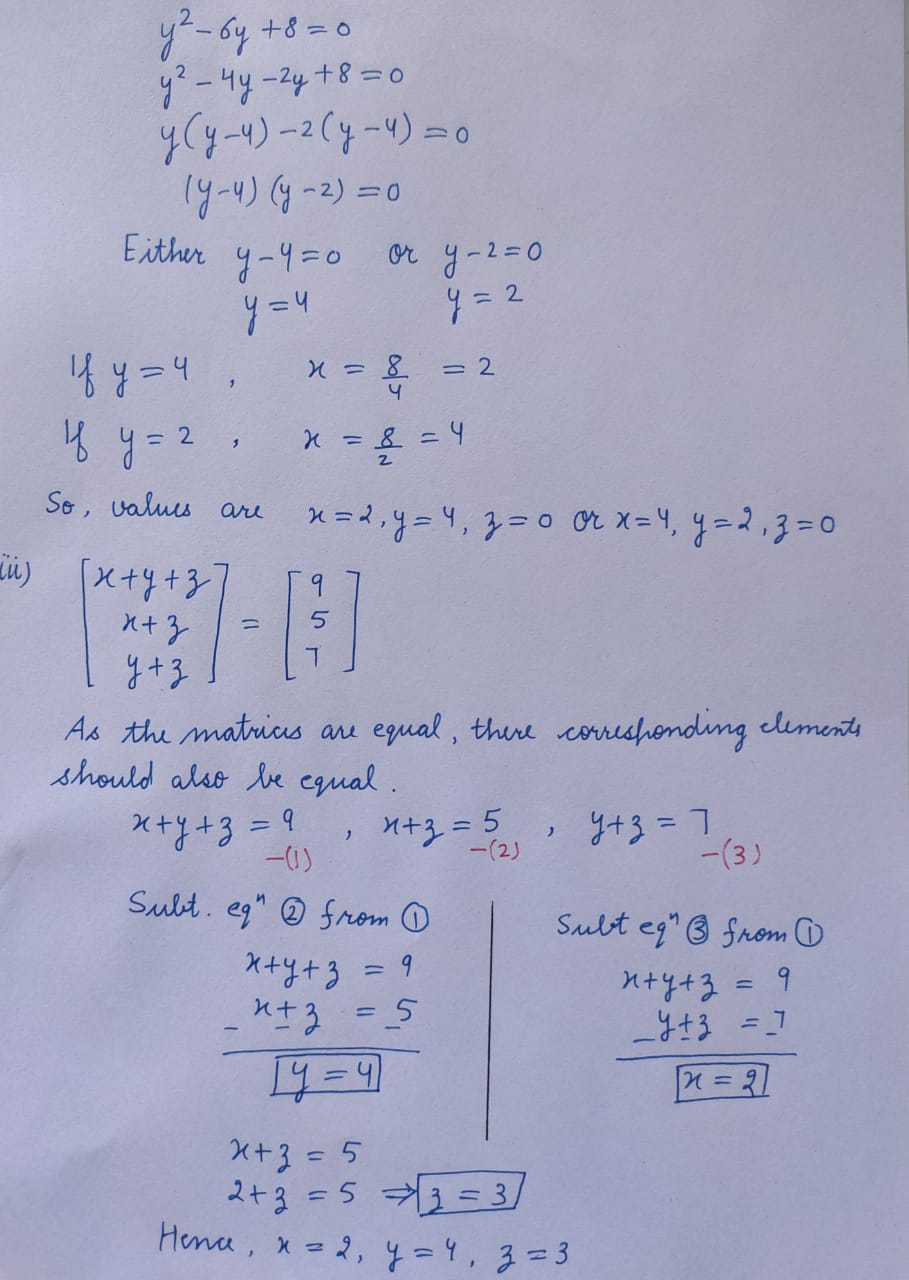 y² - 6y + 8 = 0
y² - 4y - 2y + 8 = 0
y(y-4) - 2(y-4) = 0
(y-4)(y-2) = 0
Either y-4=0 or y-2=0
y=4 y=2
If y=4, x = 8/4 = 2
If y=2, x = 8/2 = 4
So, values are x=2, y=4, z=0 or x=4, y=2, z=0
iii) [x+y+z] = [9]
[x+z] [5]
[y+z] [7]
As the matrices are equal, there corresponding elements
should also be equal.
x+y+z = 9, x+z = 5, y+z = 7
-(1) -(2) -(3)
Subt. eqⁿ ② from ①
x+y+z = 9
- x ± z = _5
y = 4
Subt eqⁿ ③ from ①
x+y+z = 9
_y ± z = _7
x = 2
x+z = 5
2+z = 5 ⇒ z = 3
Hence, x = 2, y = 4, z = 3